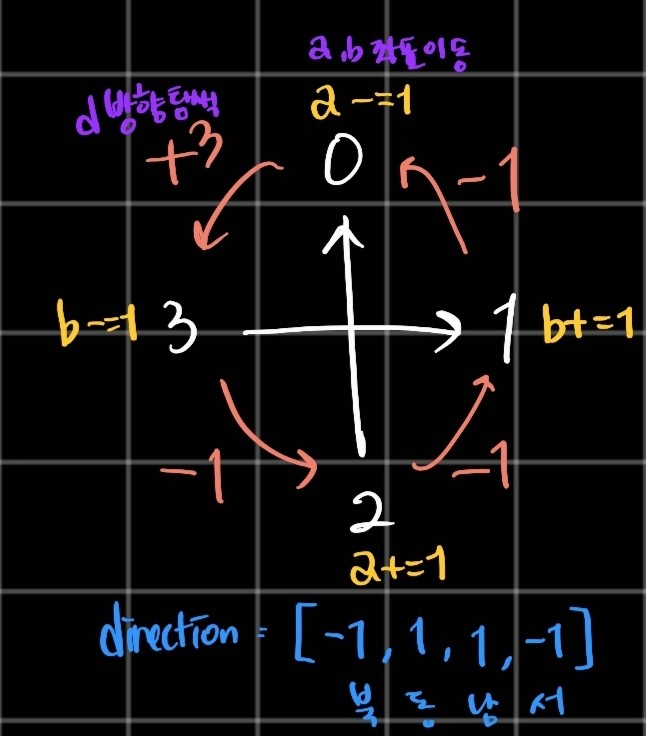 a,b 좌표이동
d 방향탐색
a-=1
+3
0
-1
b-=1
3
1
b+=1
-1
-1
2
a+=1
direction = [-1, 1, 1, -1]
북 동 남 서